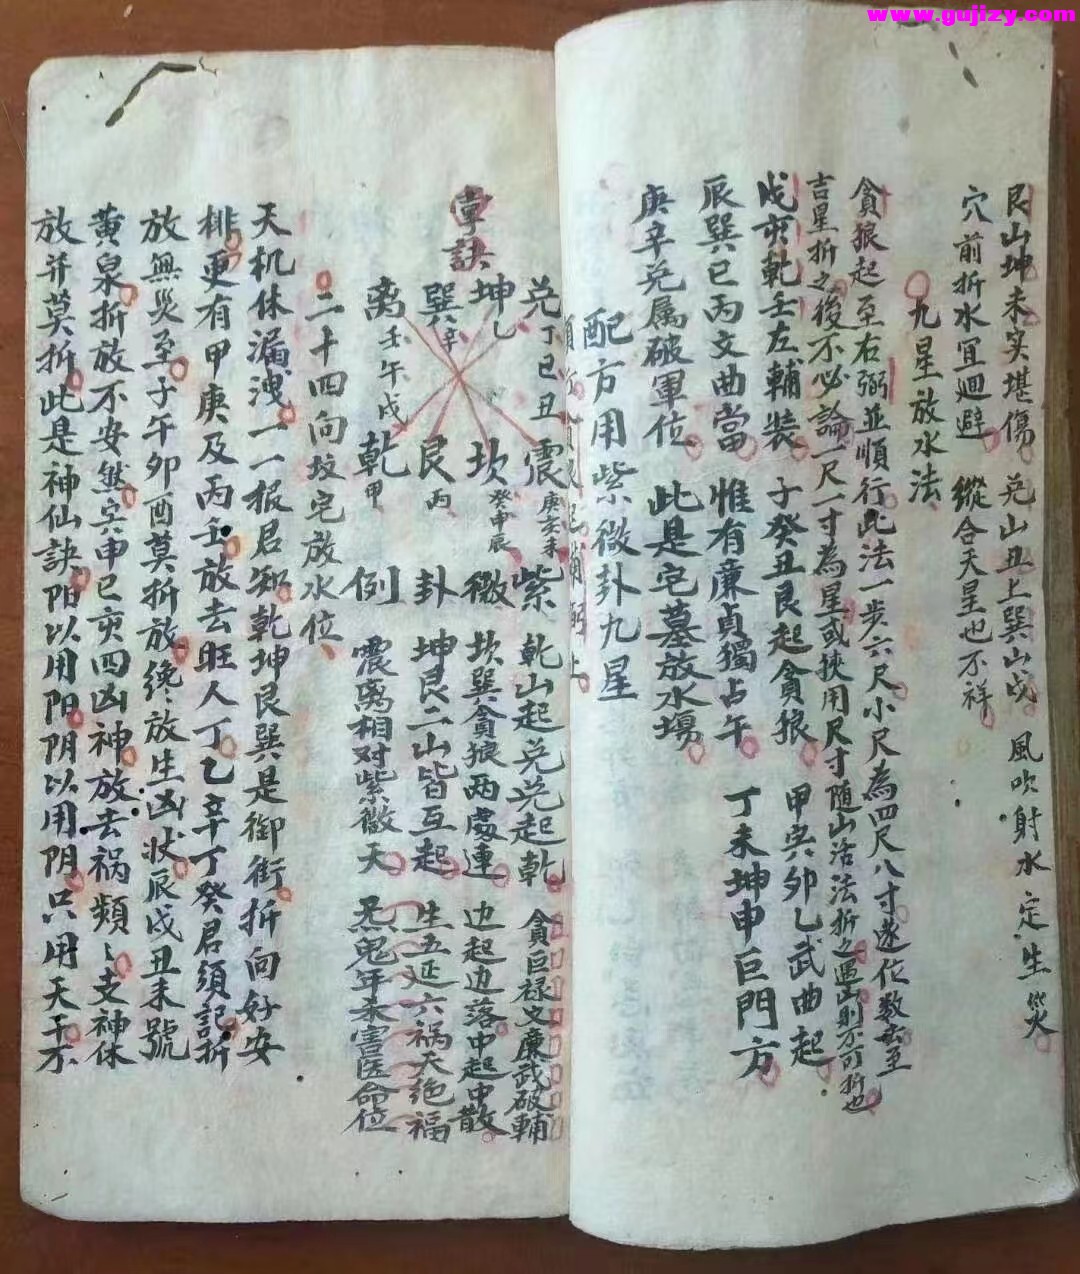 www.gujizy.com
艮山坤未实堪傷 兑山丑上巽山戌 風吹射水定生災
穴前折水宜迴避 縱合天星也不祥
九星放水法
貪狼起至右弼並順行此法一步六尺小尺為四尺八寸逐位数去至
吉星折之後不必論一尺一寸為星或挾用尺寸随山活法折之遇凶則不可折也
戌亥乾壬左輔装 子癸丑艮起貪狼 甲寅卯乙武曲起
辰巽巳丙文曲當 惟有廉貞獨占午 丁未坤申巨門方
庚辛兑属破軍位 此是宅墓放水塲
配方用紫微卦九星
章訣
兑丁巳丑 震庚亥未 紫 乾山起兑兑起乾 貪巨禄文廉武破輔
坤乙 坎癸申辰 微 坎巽貪狼两處連 边起边落中起中散
巽辛 艮丙 卦 坤艮二山皆互起 生五延六祸天绝福
离壬午戌 乾甲 例 震离相对紫微天
二十四向坟宅放水位
天机休漏洩一一报君知乾坤艮巽是御街折向好安
排更有甲庚及丙壬放去旺人丁乙辛丁癸君須記折
放無災至子午卯酉莫折放纔放生凶状辰戌丑未號
黄泉折放不安然寅申巳亥四凶神放去祸頻々支神休
放并莫折此是神仙訣阳以用阳阴以用阴只用天干不